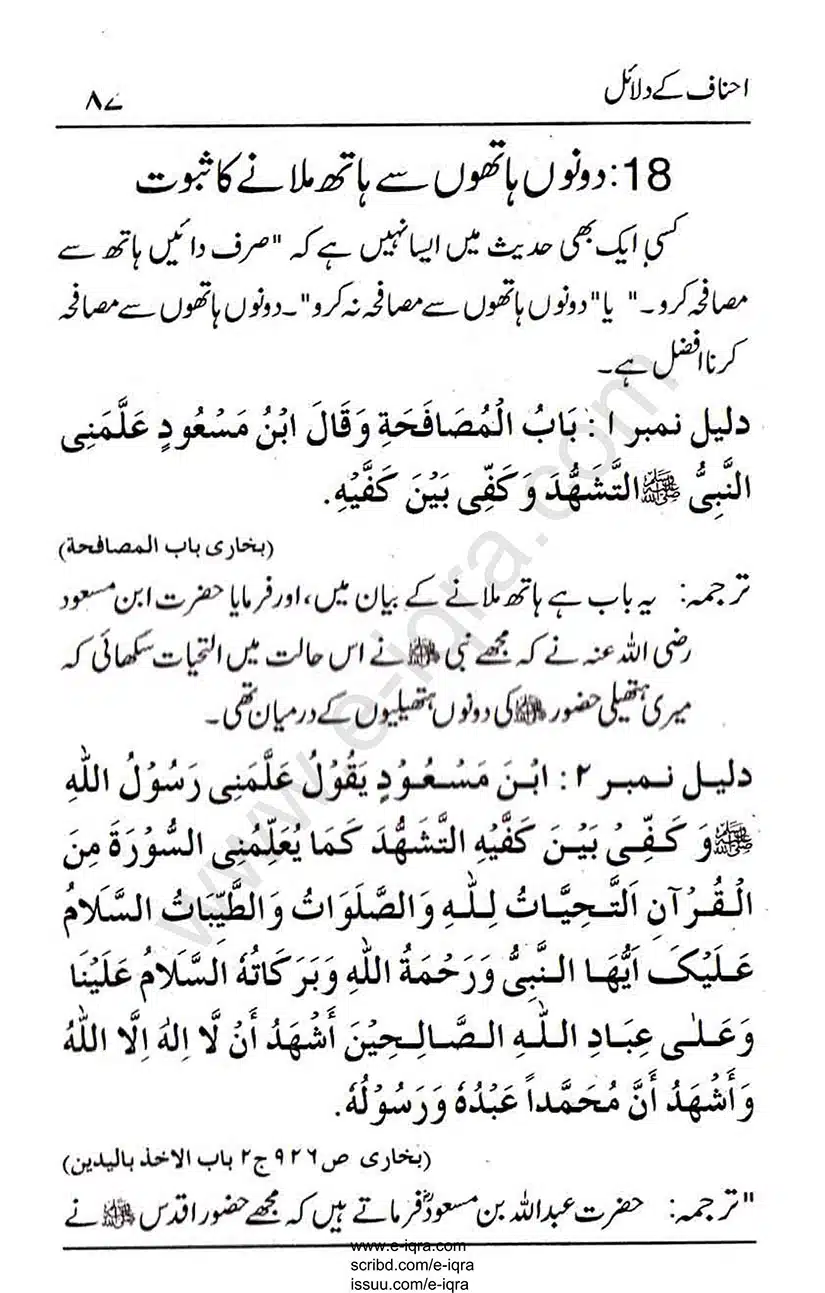 احناف کے دلائل
۸۷
18: دونوں ہاتھوں سے ہاتھ ملانے کا ثبوت
کسی ایک بھی حدیث میں ایسا نہیں ہے کہ "صرف دائیں ہاتھ سے
مصافحہ کرو۔" یا "دونوں ہاتھوں سے مصافحہ نہ کرو"۔ دونوں ہاتھوں سے مصافحہ
کرنا افضل ہے۔
دلیل نمبر ۱ : بَابُ الْمُصَافَحَةِ وَقَالَ ابْنُ مَسْعُودٍ عَلَّمَنِی
النَّبِیُّ ﷺ التَّشَهُّدَ وَ كَفِّی بَيْنَ كَفَّيْهِ.
(بخاری باب المصافحة)
ترجمہ: یہ باب ہے ہاتھ ملانے کے بیان میں، اور فرمایا حضرت ابن مسعود
رضی اللہ عنہ نے کہ مجھے نبی ﷺ نے اس حالت میں التحیات سکھائی کہ
میری ہتھیلی حضور ﷺ کی دونوں ہتھیلیوں کے درمیان تھی۔
دلیل نمبر ۲ : ابْنَ مَسْعُوْدٍ يَقُوْلُ عَلَّمَنِی رَسُوْلُ اللهِ
ﷺ وَ كَفِّیْ بَيْنَ كَفَّيْهِ التَّشَهُّدَ كَمَا يُعَلِّمُنِی السُّوْرَةَ مِنَ
الْقُرْآنِ اَلتَّحِيَّاتُ لِلّٰهِ وَالصَّلَوَاتُ وَالطَّيِّبَاتُ السَّلَامُ
عَلَيْکَ اَيُّهَا النَّبِیُّ وَرَحْمَةُ اللهِ وَبَرَكَاتُهٗ السَّلَامُ عَلَيْنَا
وَعَلٰی عِبَادِ اللهِ الصَّالِحِيْنَ أَشْهَدُ أَنْ لَّا اِلٰهَ اِلَّا اللهُ
وَأَشْهَدُ أَنَّ مُحَمَّداً عَبْدُهٗ وَرَسُوْلُهٗ.
(بخاری ص ۹۲۶ ج ۲ باب الاخذ بالیدین)
"ترجمہ: حضرت عبداللہ بن مسعودؓ فرماتے ہیں کہ مجھے حضور اقدس ﷺ نے
www.e-iqra.com
www.e-iqra.com
scribd.com/e-iqra
issuu.com/e-iqra